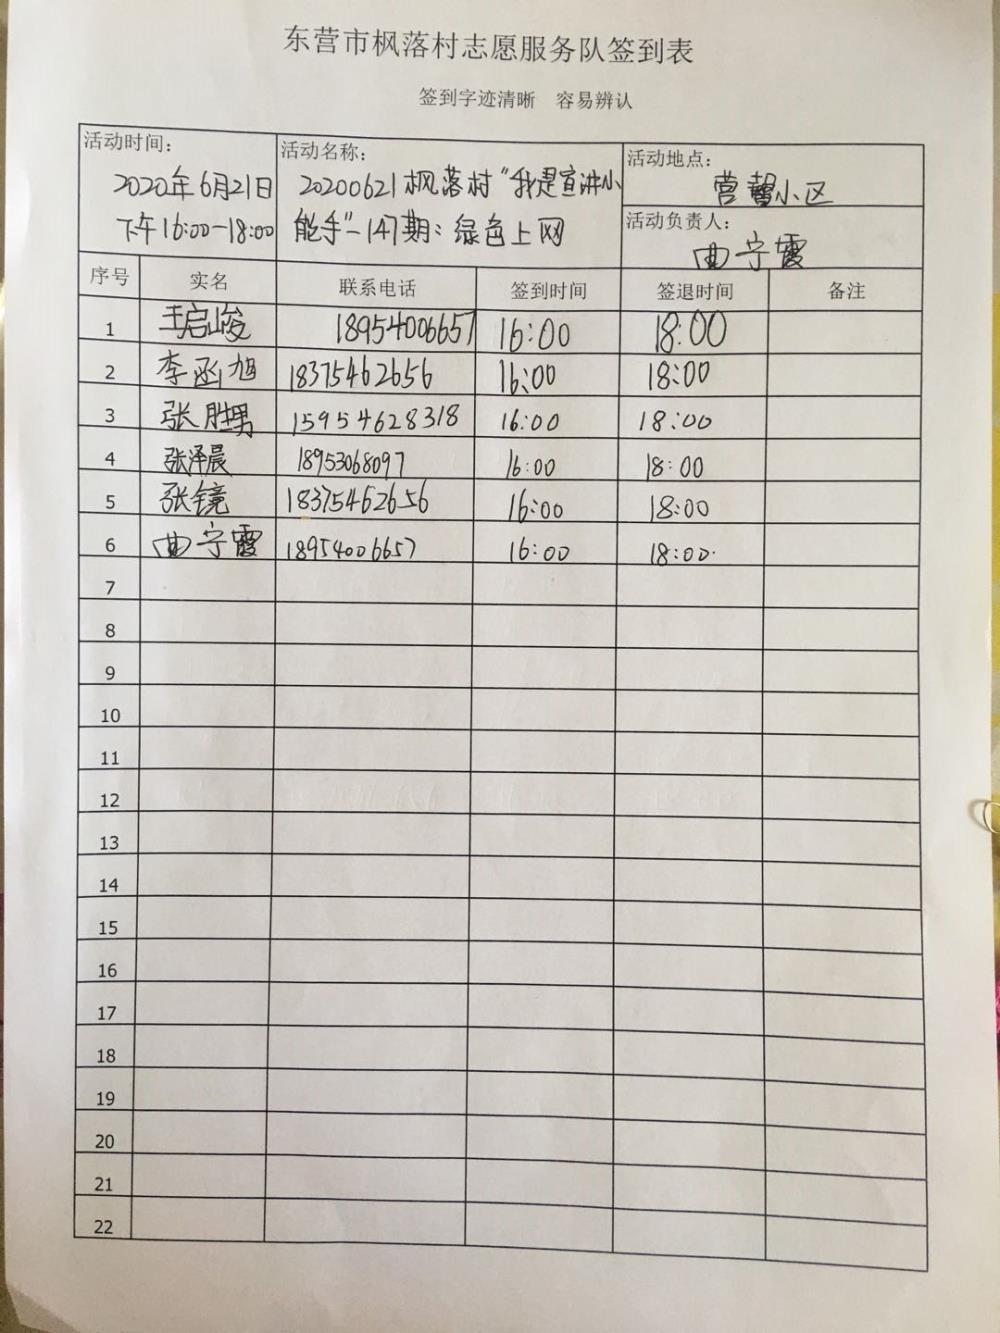 东营市枫落村志愿服务队签到表
签到字迹清晰 容易辨认
活动时间：
2020年6月21日
下午16:00-18:00
活动名称：
20200621枫落村“我是宣讲小
能手”-147期：绿色上网
活动地点：
营馨小区
活动负责人：
曲宁霞
序号 实名 联系电话 签到时间 签退时间 备注
1 王启峻 18954006657 16:00 18:00
2 李函旭 18375462656 16:00 18:00
3 张胜男 15954628318 16:00 18:00
4 张泽晨 18953068097 16:00 18:00
5 张镜 18375462656 16:00 18:00
6 曲宁霞 18954006657 16:00 18:00
7
8
9
10
11
12
13
14
15
16
17
18
19
20
21
22